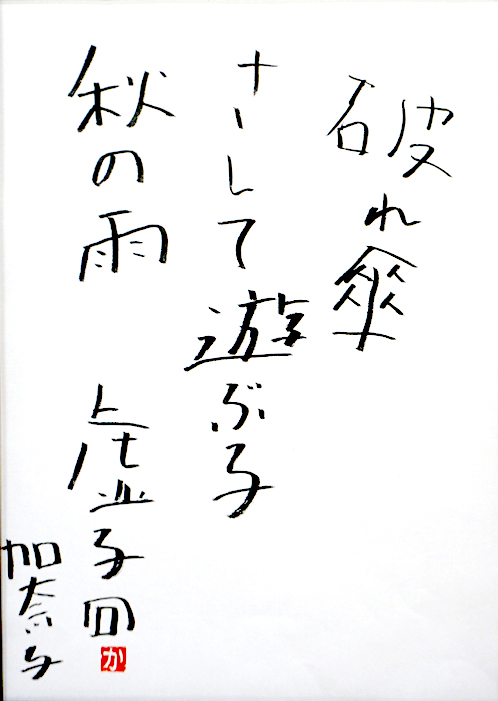 破れ傘
さして遊ぶ子
秋の雨
虚子
加奈子
か